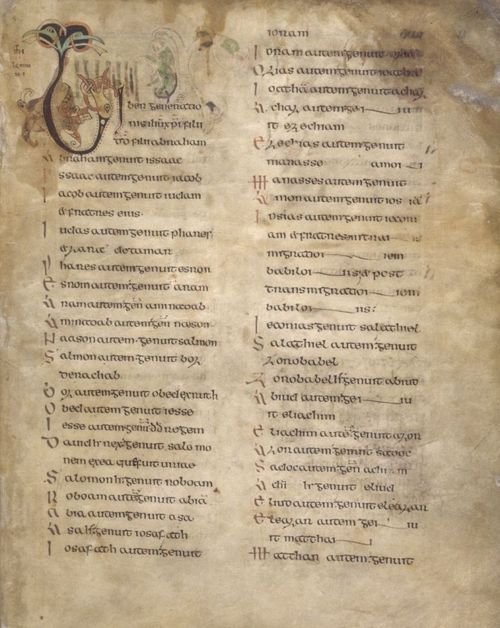 ber generatio
nis ihu xpi fili
dd fili abraham
Abraham genuit issaac
Issaac autem genuit iacob
Iacob autem genuit iudam
& fratres eius
Iudas autem genuit phares
& zara de tamar
Phares autem genuit esrom
Esrom autem genuit aram
Aram autem gen aminadab
Aminadab autem gen nason
Naason autem genuit salmon
Salmon autem genuit boz
de rachab
Boz autem genuit obed ex ruth
Obed autem genuit iesse
Iesse autem genuit dd regem
Dauid h rex genuit salo mo
nem ex ea que fuit uriae
Salomon h genuit roboam
Roboam autem genuit abia
Abia autem genuit asa
Asa h genuit iosafath
Iosafath autem genuit
ioram
Ioram autem genuit
Ozias autem genuit ioatham
Ioatham autem genuit achaz
Achaz autem gen
it ezechiam
Ezechias autem genuit
manasse
Manasses autem genuit
Amon autem genuit ios
Iosias autem genuit iecon
iam & fratres in trans
migration em
babilonis & post
transmigration em
babilonis
Ieconias genuit salathiel
Salathiel autem genuit
zorobabel
Zorobabel h genuit abiud
Abiud autem gen u
it eliachim
Eliachim autem genuit azor
Azor autem genuit sadoc
Sadoc autem gen achim
Achim h genuit eliud
Eliud autem genuit eleazar
Eleazar autem gen u
it matthan
Matthan autem genuit